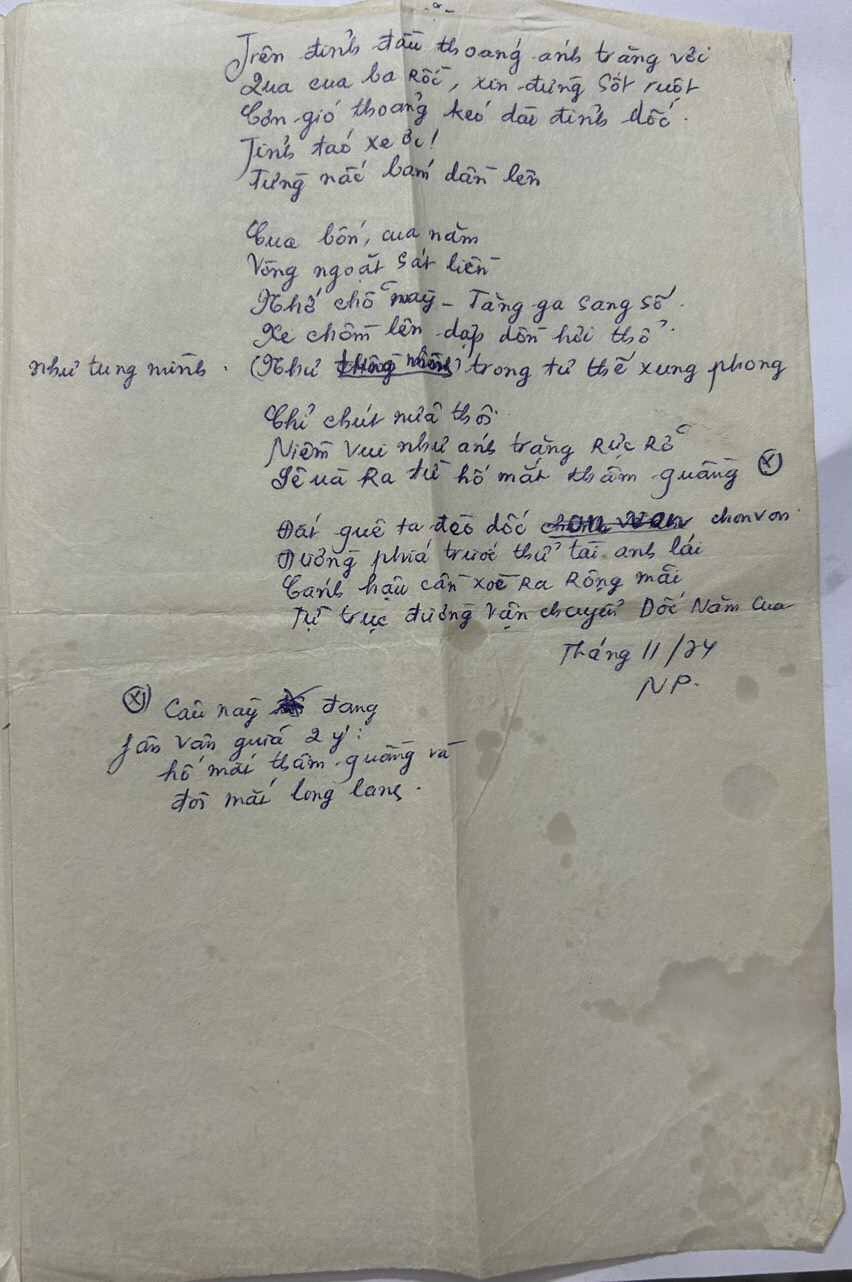 -2-
Trên đỉnh đầu thoáng ánh trăng vời
Qua cua ba Rồi, xin đừng Sốt ruột
Cơn gió thoảng kéo dài đỉnh dốc.
Tỉnh táo xe ơi!
Từng nấc bám dần lên
Cua bốn, cua năm
Vòng ngoặt Sát liền
Nhả chỗ này - Tăng ga sang số.
Xe chồm lên dạp dồn hơi thở.
như tung mình. (Như trong tư thế xung phong
Chỉ chút nữa thôi
Niềm vui như ánh trăng Rực Rỡ
Sẽ uà Ra từ hố mắt thâm quầng (x)
Đất quê ta đèo dốc chon von chonvon
Đường phía trước thử tài anh lái
Cánh hậu cần xoè Ra Rộng mãi
Tự trục đường vận chuyển Dốc Năm Cua
Tháng 11/84
NP.
(x) Câu này đang
fân vân giữa 2 ý:
hố mắt thâm quầng và
đôi mắt long lanh.